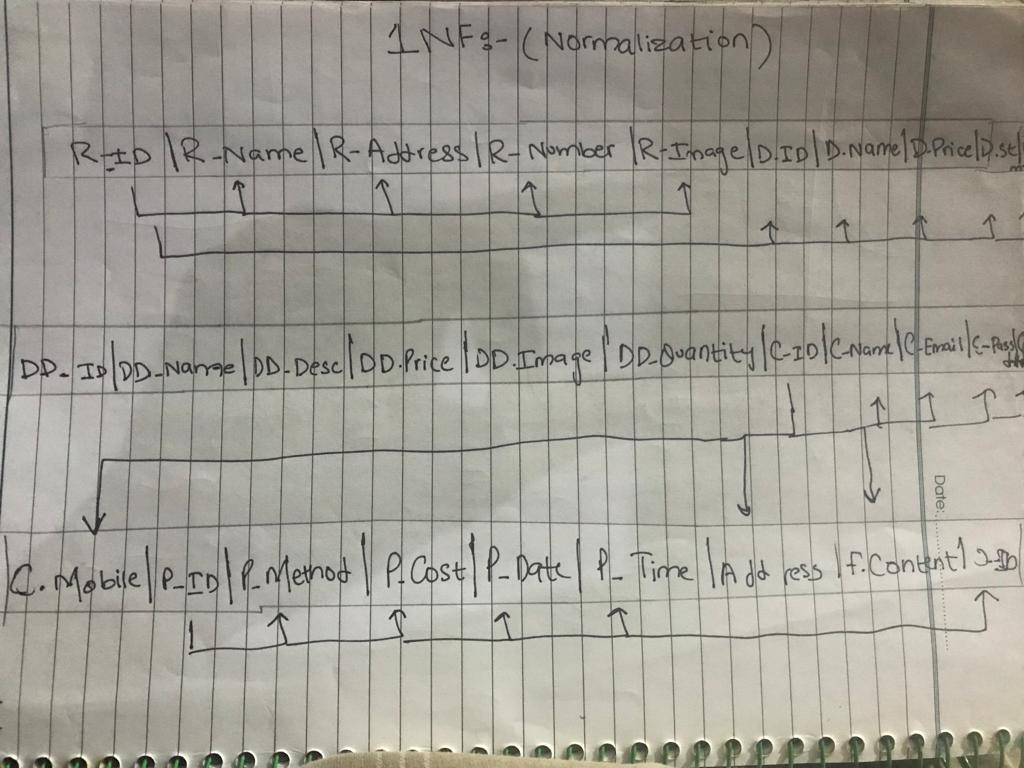 1NF:- (Normalization)
R-ID | R-Name | R-Address | R-Number | R-Image | D.ID | D.Name | D.Price | D.st
DD-ID | DD-Name | DD-Desc | DD.Price | DD.Image | DD-Quantity | C-ID | C-Name | C-Email | C-Pass
Date:
C.Mobile | P-ID | P-Method | P.Cost | P-Date | P-Time | Address | f.Content |